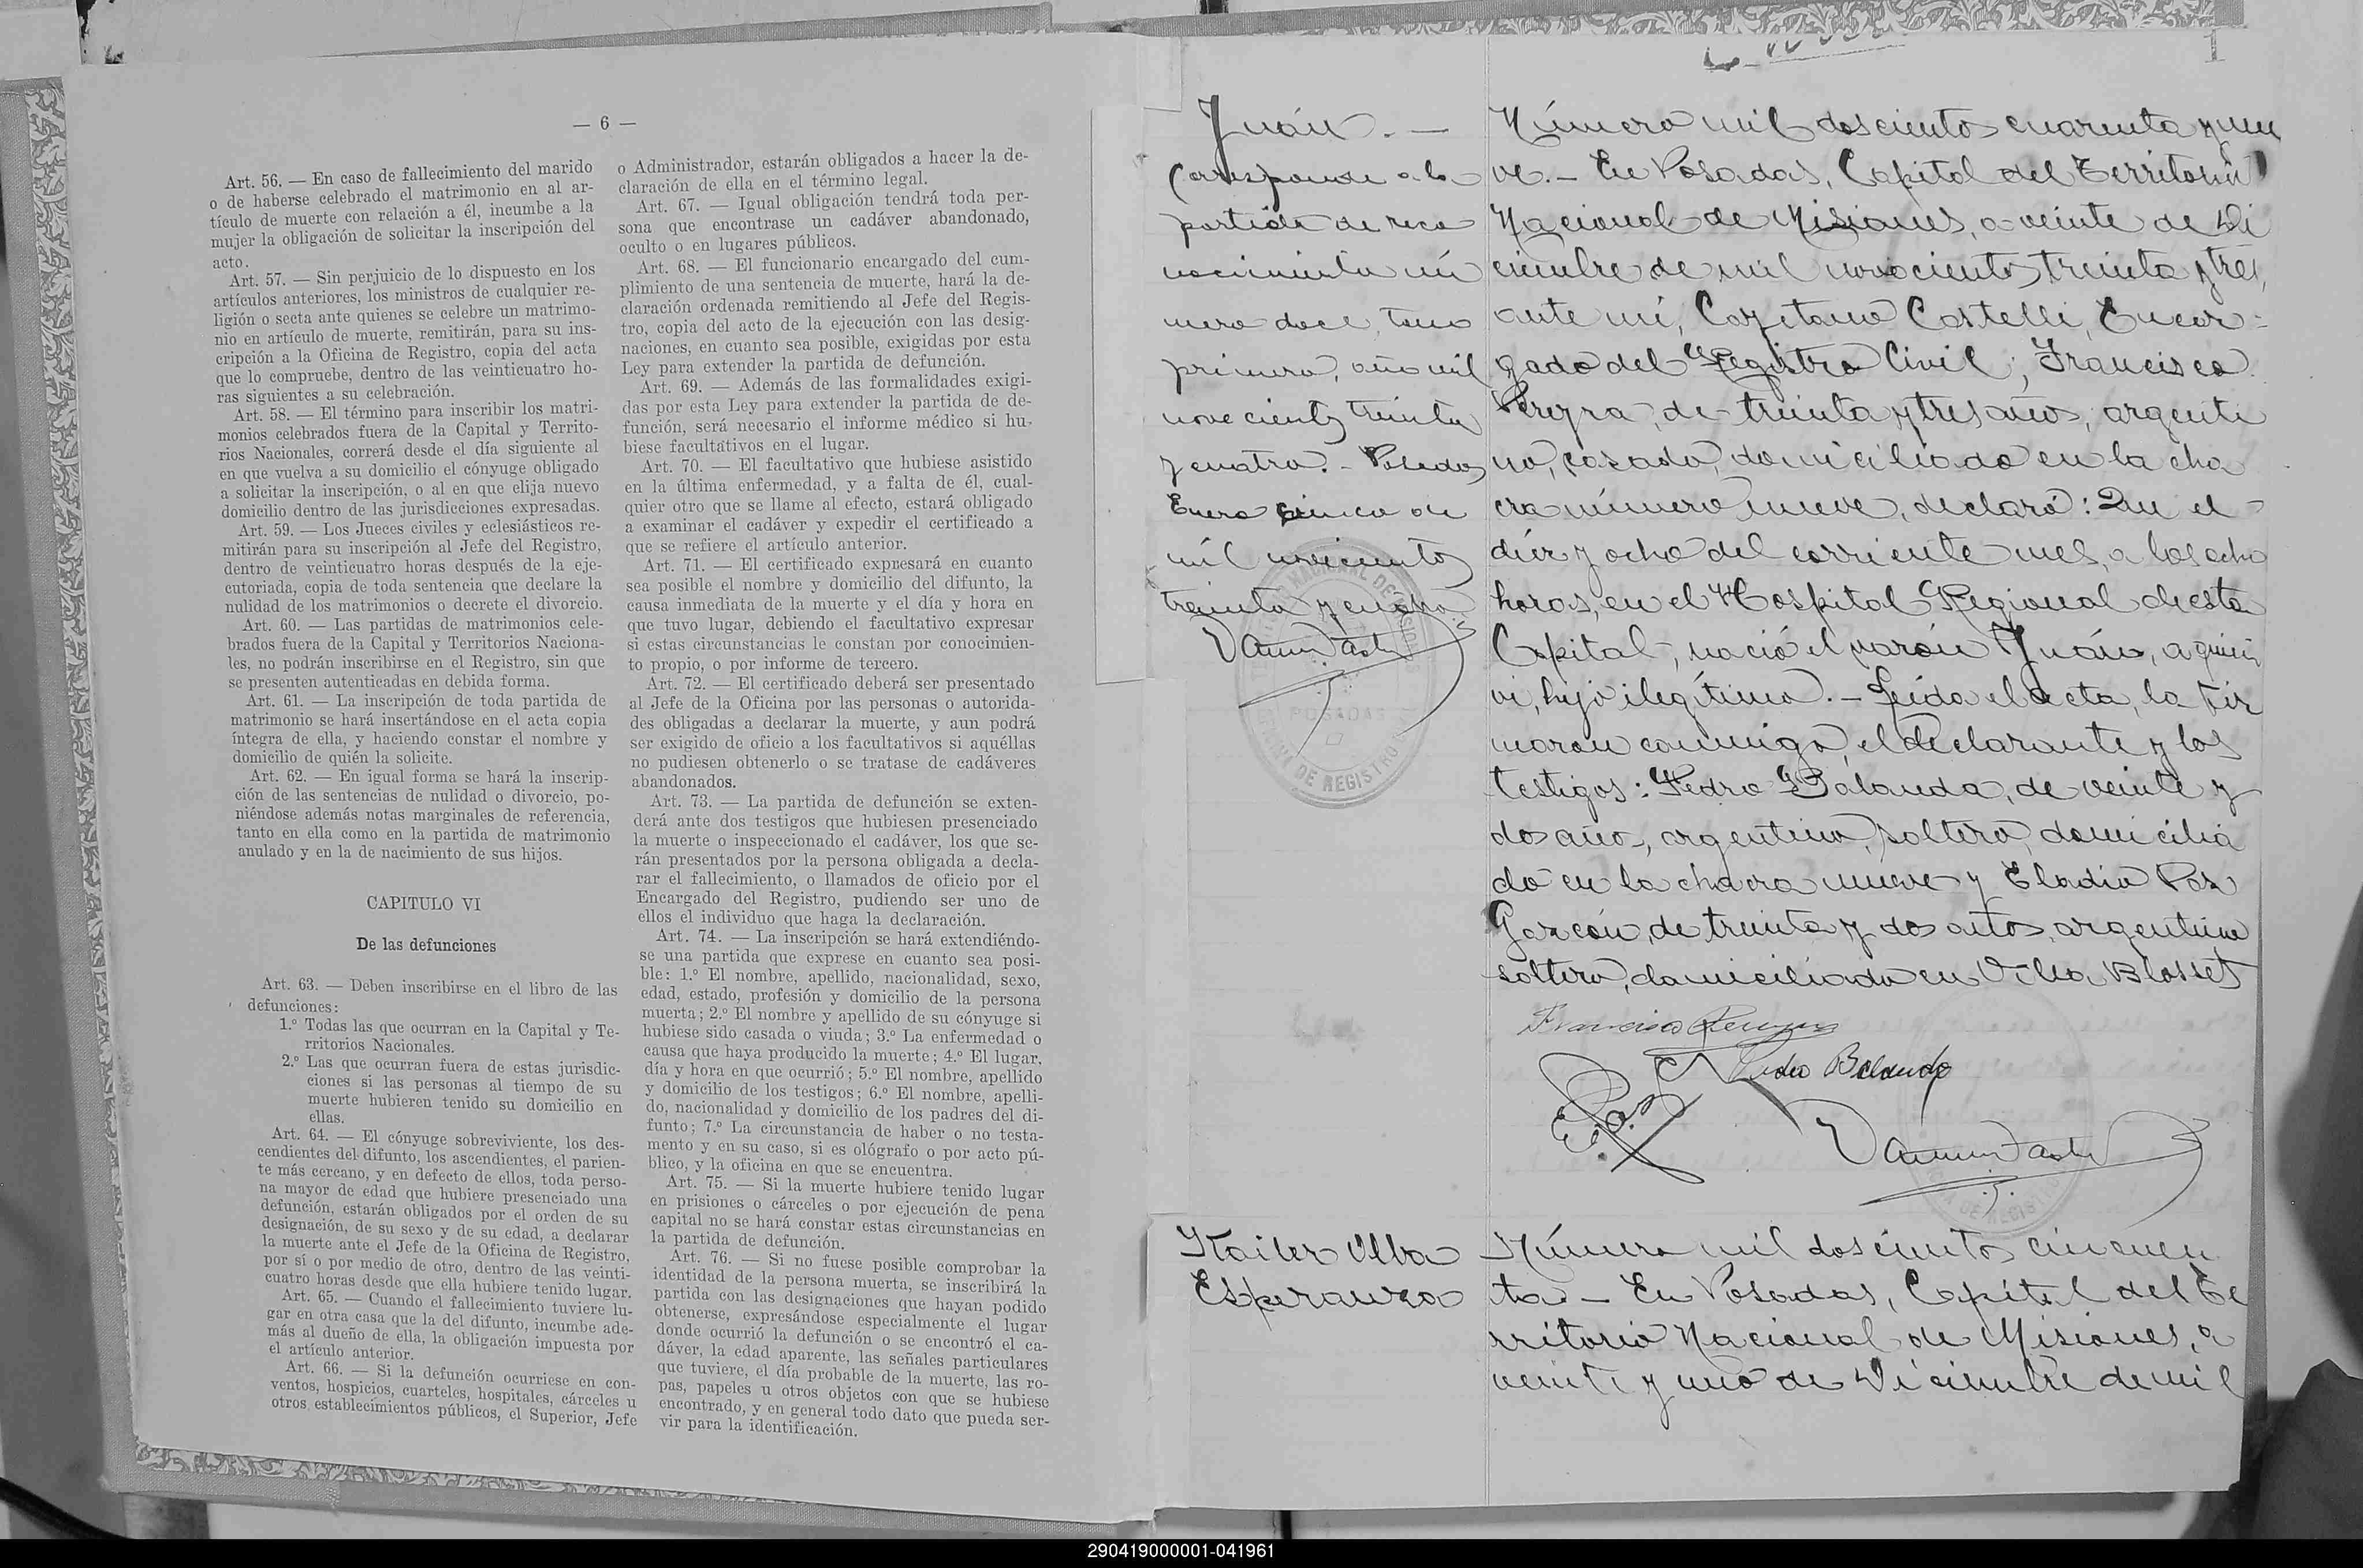 — 6 —
Art. 56. — En caso de fallecimiento del marido
o de haberse celebrado el matrimonio en al ar-
tículo de muerte con relación a él, incumbe a la
mujer la obligación de solicitar la inscripción del
acto.
Art. 57. — Sin perjuicio de lo dispuesto en los
artículos anteriores, los ministros de cualquier re-
ligión o secta ante quienes se celebre un matrimo-
nio en artículo de muerte, remitirán, para su ins-
cripción a la Oficina de Registro, copia del acta
que lo compruebe, dentro de las veinticuatro ho-
ras siguientes a su celebración.
Art. 58. — El término para inscribir los matri-
monios celebrados fuera de la Capital y Territo-
rios Nacionales, correrá desde el día siguiente al
en que vuelva a su domicilio el cónyuge obligado
a solicitar la inscripción, o al en que elija nuevo
domicilio dentro de las jurisdicciones expresadas.
Art. 59. — Los Jueces civiles y eclesiásticos re-
mitirán para su inscripción al Jefe del Registro,
dentro de veinticuatro horas después de la eje-
cutoriada, copia de toda sentencia que declare la
nulidad de los matrimonios o decrete el divorcio.
Art. 60. — Las partidas de matrimonios cele-
brados fuera de la Capital y Territorios Naciona-
les, no podrán inscribirse en el Registro, sin que
se presenten autenticadas en debida forma.
Art. 61. — La inscripción de toda partida de
matrimonio se hará insertándose en el acta copia
íntegra de ella, y haciendo constar el nombre y
domicilio de quién la solicite.
Art. 62. — En igual forma se hará la inscrip-
ción de las sentencias de nulidad o divorcio, po-
niéndose además notas marginales de referencia,
tanto en ella como en la partida de matrimonio
anulado y en la de nacimiento de sus hijos.
CAPITULO VI
De las defunciones
Art. 63. — Deben inscribirse en el libro de las
defunciones:
1.º Todas las que ocurran en la Capital y Te-
rritorios Nacionales.
2.º Las que ocurran fuera de estas jurisdic-
ciones si las personas al tiempo de su
muerte hubieren tenido su domicilio en
ellas.
Art. 64. — El cónyuge sobreviviente, los des-
cendientes del difunto, los ascendientes, el parien-
te más cercano, y en defecto de ellos, toda perso-
na mayor de edad que hubiere presenciado una
defunción, estarán obligados por el orden de su
designación, de su sexo y de su edad, a declarar
la muerte ante el Jefe de la Oficina de Registro,
por sí o por medio de otro, dentro de las veinti-
cuatro horas desde que ella hubiere tenido lugar.
Art. 65. — Cuando el fallecimiento tuviere lu-
gar en otra casa que la del difunto, incumbe ade-
más al dueño de ella, la obligación impuesta por
el artículo anterior.
Art. 66. — Si la defunción ocurriese en con-
ventos, hospicios, cuarteles, hospitales, cárceles u
otros establecimientos públicos, el Superior, Jefe
o Administrador, estarán obligados a hacer la de-
claración de ella en el término legal.
Art. 67. — Igual obligación tendrá toda per-
sona que encontrase un cadáver abandonado,
oculto o en lugares públicos.
Art. 68. — El funcionario encargado del cum-
plimiento de una sentencia de muerte, hará la de-
claración ordenada remitiendo al Jefe del Regis-
tro, copia del acto de la ejecución con las desig-
naciones, en cuanto sea posible, exigidas por esta
Ley para extender la partida de defunción.
Art. 69. — Además de las formalidades exigi-
das por esta Ley para extender la partida de de-
función, será necesario el informe médico si hu-
biese facultativos en el lugar.
Art. 70. — El facultativo que hubiese asistido
en la última enfermedad, y a falta de él, cual-
quier otro que se llame al efecto, estará obligado
a examinar el cadáver y expedir el certificado a
que se refiere el artículo anterior.
Art. 71. — El certificado expresará en cuanto
sea posible el nombre y domicilio del difunto, la
causa inmediata de la muerte y el día y hora en
que tuvo lugar, debiendo el facultativo expresar
si estas circunstancias le constan por conocimien-
to propio, o por informe de tercero.
Art. 72. — El certificado deberá ser presentado
al Jefe de la Oficina por las personas o autorida-
des obligadas a declarar la muerte, y aun podrá
ser exigido de oficio a los facultativos si aquéllas
no pudiesen obtenerlo o se tratase de cadáveres
abandonados.
Art. 73. — La partida de defunción se exten-
derá ante dos testigos que hubiesen presenciado
la muerte o inspeccionado el cadáver, los que se-
rán presentados por la persona obligada a decla-
rar el fallecimiento, o llamados de oficio por el
Encargado del Registro, pudiendo ser uno de
ellos el individuo que haga la declaración.
Art. 74. — La inscripción se hará extendiéndo-
se una partida que exprese en cuanto sea posi-
ble: 1.º El nombre, apellido, nacionalidad, sexo,
edad, estado, profesión y domicilio de la persona
muerta; 2.º El nombre y apellido de su cónyuge si
hubiese sido casada o viuda; 3.º La enfermedad o
causa que haya producido la muerte; 4.º El lugar,
día y hora en que ocurrió; 5.º El nombre, apellido
y domicilio de los testigos; 6.º El nombre, apelli-
do, nacionalidad y domicilio de los padres del di-
funto; 7.º La circunstancia de haber o no testa-
mento y en su caso, si es ológrafo o por acto pú-
blico, y la oficina en que se encuentra.
Art. 75. — Si la muerte hubiere tenido lugar
en prisiones o cárceles o por ejecución de pena
capital no se hará constar estas circunstancias en
la partida de defunción.
Art. 76. — Si no fuese posible comprobar la
identidad de la persona muerta, se inscribirá la
partida con las designaciones que hayan podido
obtenerse, expresándose especialmente el lugar
donde ocurrió la defunción o se encontró el ca-
dáver, la edad aparente, las señales particulares
que tuviere, el día probable de la muerte, las ro-
pas, papeles u otros objetos con que se hubiese
encontrado, y en general todo dato que pueda ser-
vir para la identificación.
1
Juán. —
Corresponde a la
partida de reco
nocimiento nú
mero doce, tomo
primero, año mil
novecientos treinta
y cuatro. - Posadas,
Enero cinco de
mil novecientos
treinta y cuatro.
Número mil doscientos cuarenta y nue
ve. — En Posadas, Capital del Territorio
Nacional de Misiones, a veinte de Di
ciembre de mil novecientos treinta y tres,
ante mí, Cayetano Castelli, Encar=
gado del Registro Civil; Francisco
Pereyra, de treinta y tres años, argenti
no, casado, domiciliado en la cha
cra número nueve, declaró: Que el
diez y ocho del corriente mes, a las ocho
horas, en el Hospital Regional de esta
Capital, nació el varón Juán, a quien
vi, hijo ilegítimo. — Leída el acta, la fir
maron conmigo, el declarante y los
testigos: Pedro Balanda, de veinte y
dos años, argentino, soltero, domicilia
do en la chacra nueve y Eladio Paz
Garzón, de treinta y dos años, argentino
soltero, domiciliado en Villa Blosset
Francisco Pereyra
Pedro Balanda
POSADAS
DE REGISTRO
Alba
Esperanza
Número mil doscientos cincuen
ta. — En Posadas, Capital del Te
rritorio Nacional de Misiones, a
veinte y uno de Diciembre de mil
290419000001-041961